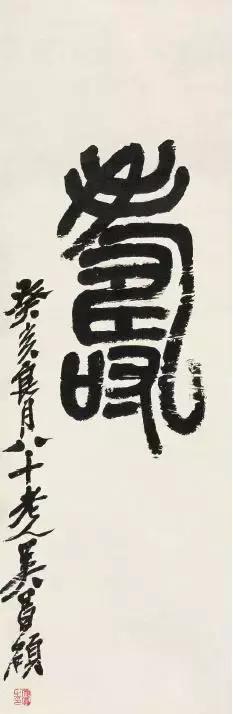 壽
癸亥良月八十老人吳昌碩